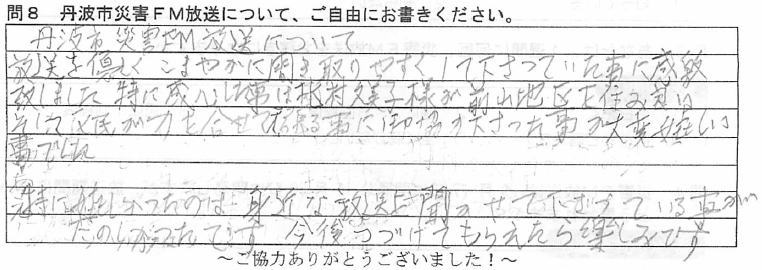 問8 丹波市災害FM放送について、ご自由にお書きください。
丹波市災害FM放送について
放送を こまやかに聞き取りやすくして下さっていた事に感激
致しました 特に感心した事は 様が 前山地区を
そして区民が力を合せて 事に御協力下さった事が大変嬉しい
事でした
特に嬉しかったのは身近な放送を聞かせて下さっている事が
たのしかったです 今後つづけてもらえたら楽しみです
～ご協力ありがとうございました！～